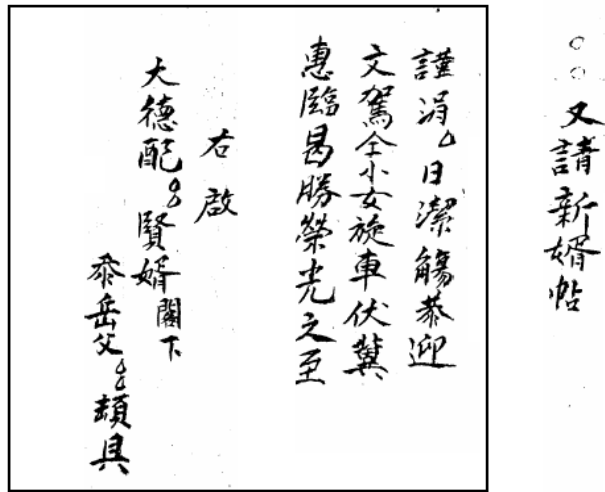 ○○又請新婿帖
謹涓○日潔觴恭迎
文駕仝小女旋車伏冀
惠臨曷勝榮光之至
右啟
大德配○○賢婿閣下
忝岳父○○頓具